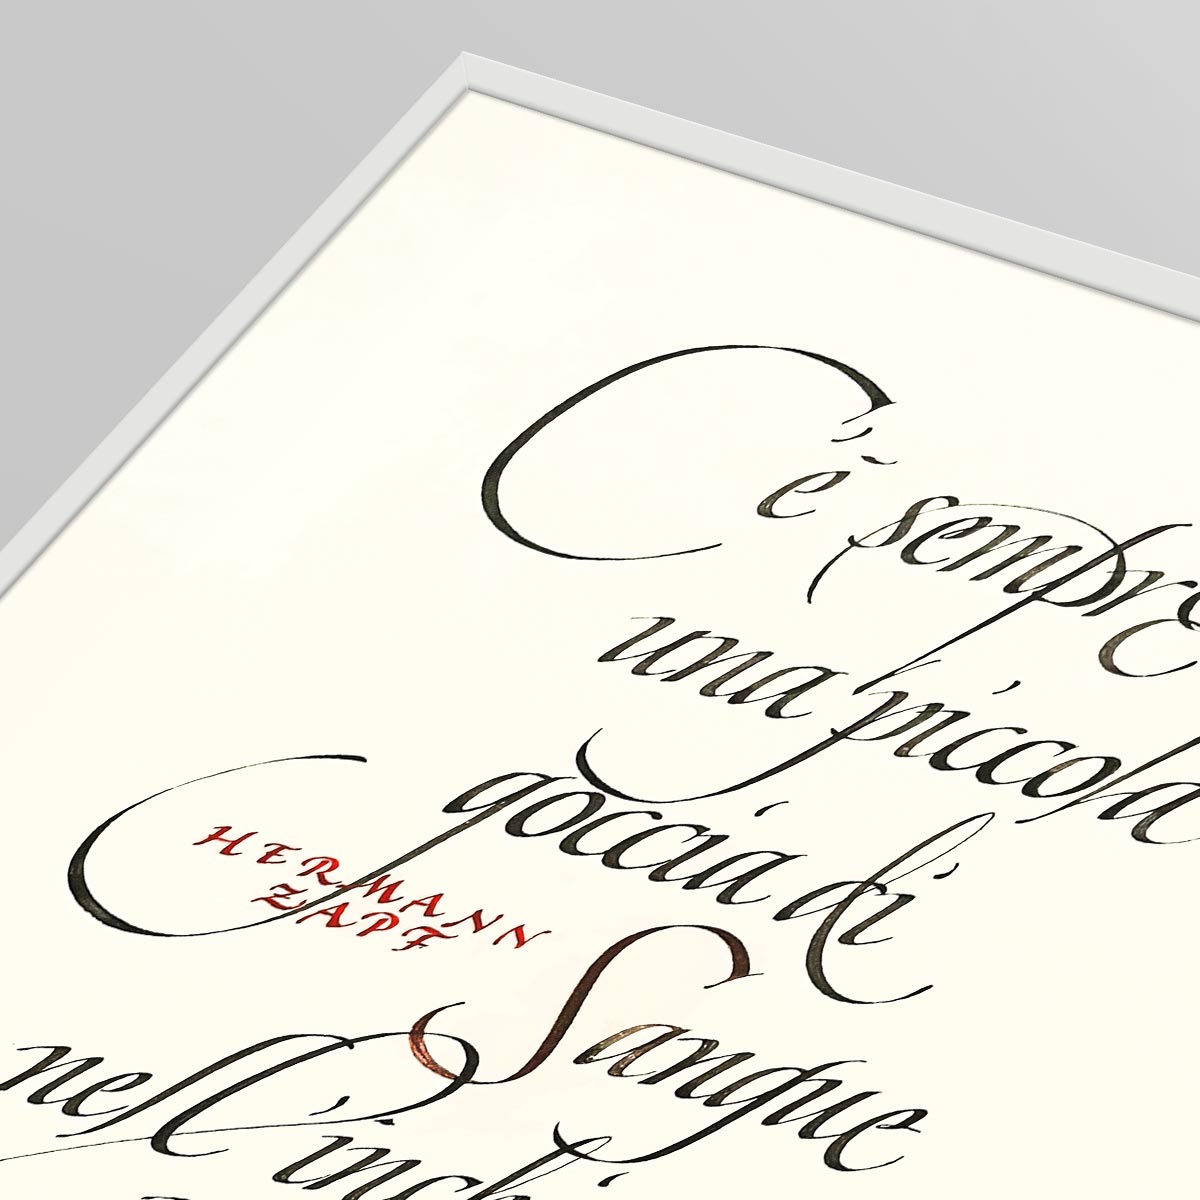 C'è sempre
una piccola
goccia di
HERMANN
ZAPF
Sangue
nell'inch